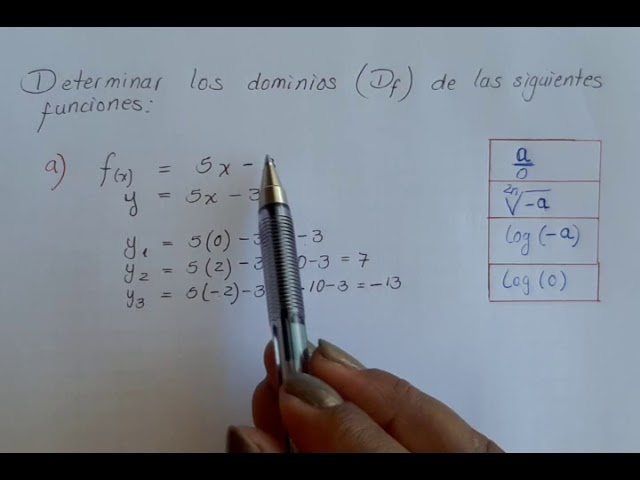 Determinar los dominios (Df) de las siguientes
funciones:
a) f(x) = 5x -
y = 5x - 3
y₁ = 5(0) - 3 - 3
y₂ = 5(2) - 3 0 - 3 = 7
y₃ = 5(-2) - 3 - 10 - 3 = -13
a/0
²ⁿ√-a
log (-a)
log (0)